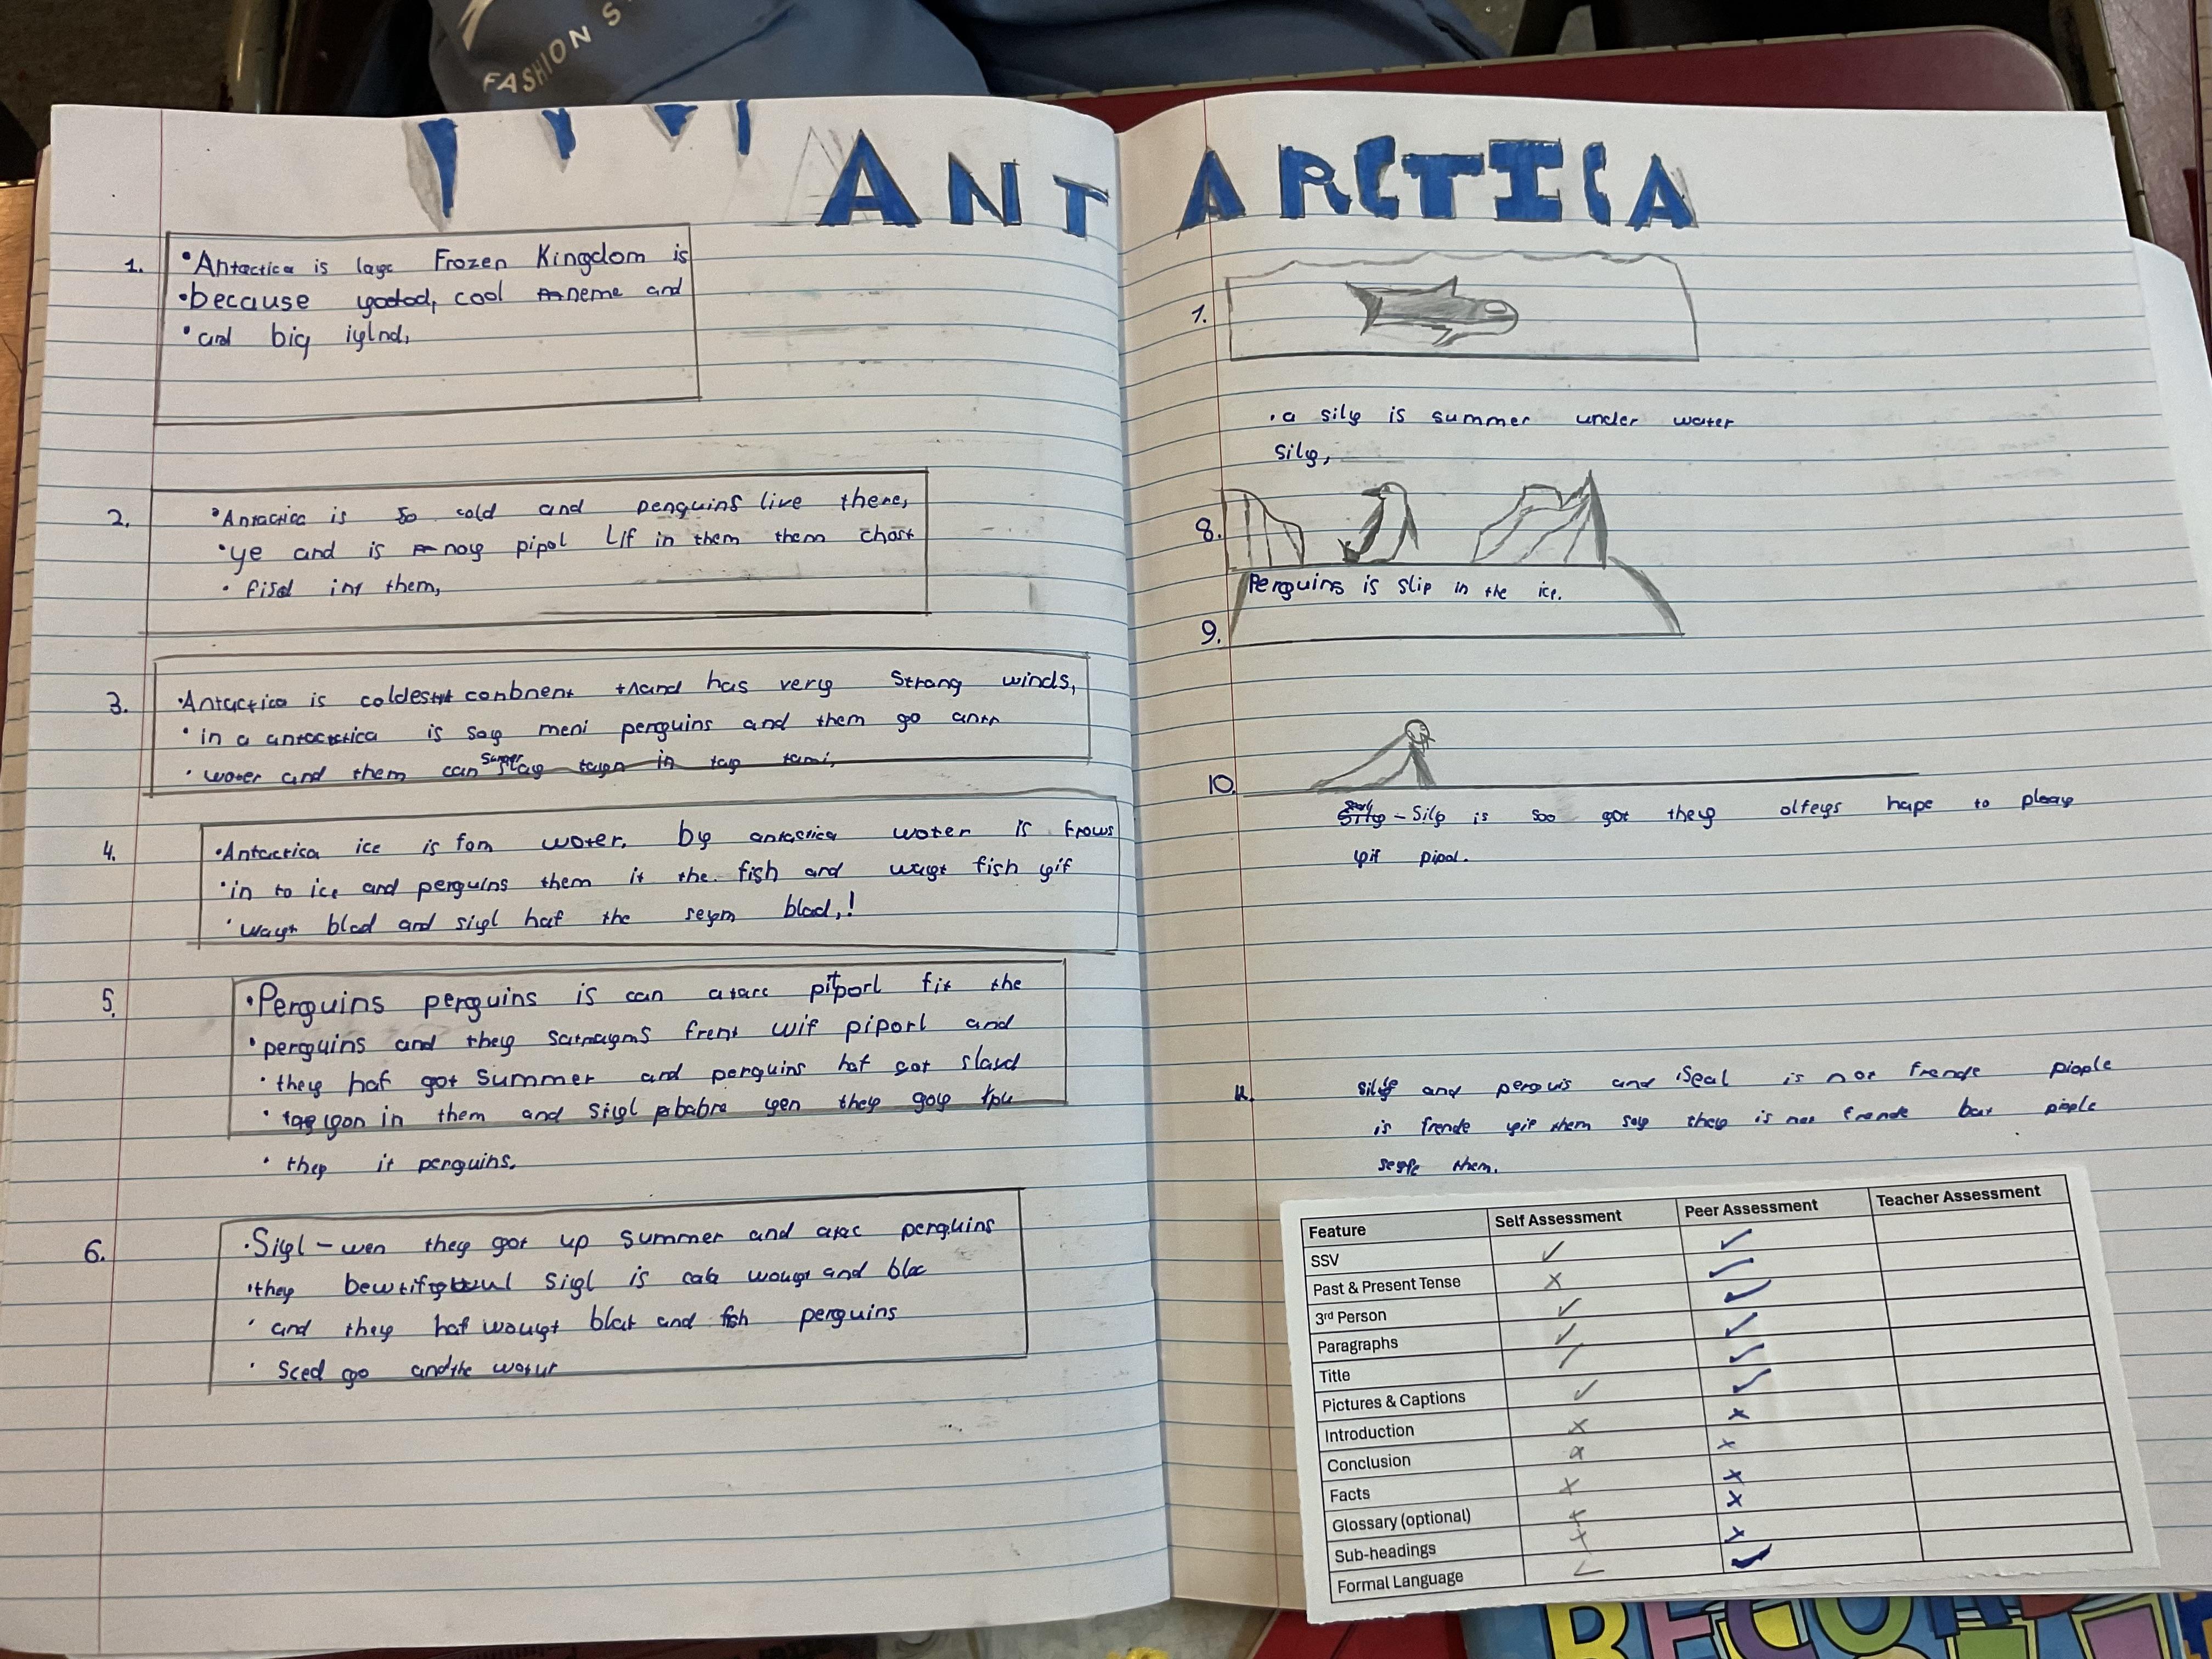 FASHION S
ANTARCTICA
1. •Antactica is lage Frozen Kingdom is
•because cool neme and
•and big iylnd,
2. •Antactica is so cold and penguins live there,
•ye and is noy pipol Lif in them them chost
• fisd int them,
3. •Antactica is coldest conbnent and has very strong winds,
• in a antactctica is say meni penguins and them go antr
• woter and them can in tay tami,
4. •Antarctica ice is fom woter. by antastica woter is frows
•in to ice and penguins them it the fish and wayt fish yif
•wayt blod and siyl haf the seym blod,!
5. •Penguins penguins is can atarc pitporl fit the
•penguins and they frent wif piporl and
•they haf got summer and penguins haf got slaud
• in them and siyl babre yen they goy
• they it penguins.
6. •Siyl - wen they got up summer and atac penguins
•they siyl is woyt and blac
• and they haf wouyt blat and fish penguins
• sced go and the watur
1.
• a sily is summer under water
sily,
8.
Penguins is slip in the ice.
9.
10.
- Sily is soo got they olfeys hape to pleay
yif pipol.
11. and penguis and Seal is not frende piople
is frende yif them say they is not frende bat piople
them.
Feature Self Assessment Peer Assessment Teacher Assessment
SSV ✓ ✓
Past & Present Tense x ✓
3rd Person ✓ ✓
Paragraphs ✓ ✓
Title ✓ ✓
Pictures & Captions ✓ ✓
Introduction x x
Conclusion x x
Facts x x
Glossary (optional) x x
Sub-headings x x
Formal Language ✓ ✓
RECORD